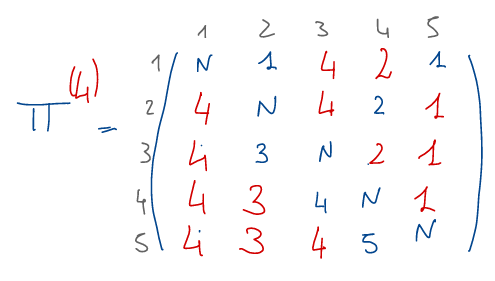 1 2 3 4 5
1 N 1 4 2 1
2 4 N 4 2 1
Π(4) =
3 4 3 N 2 1
4 4 3 4 N 1
5 4 3 4 5 N